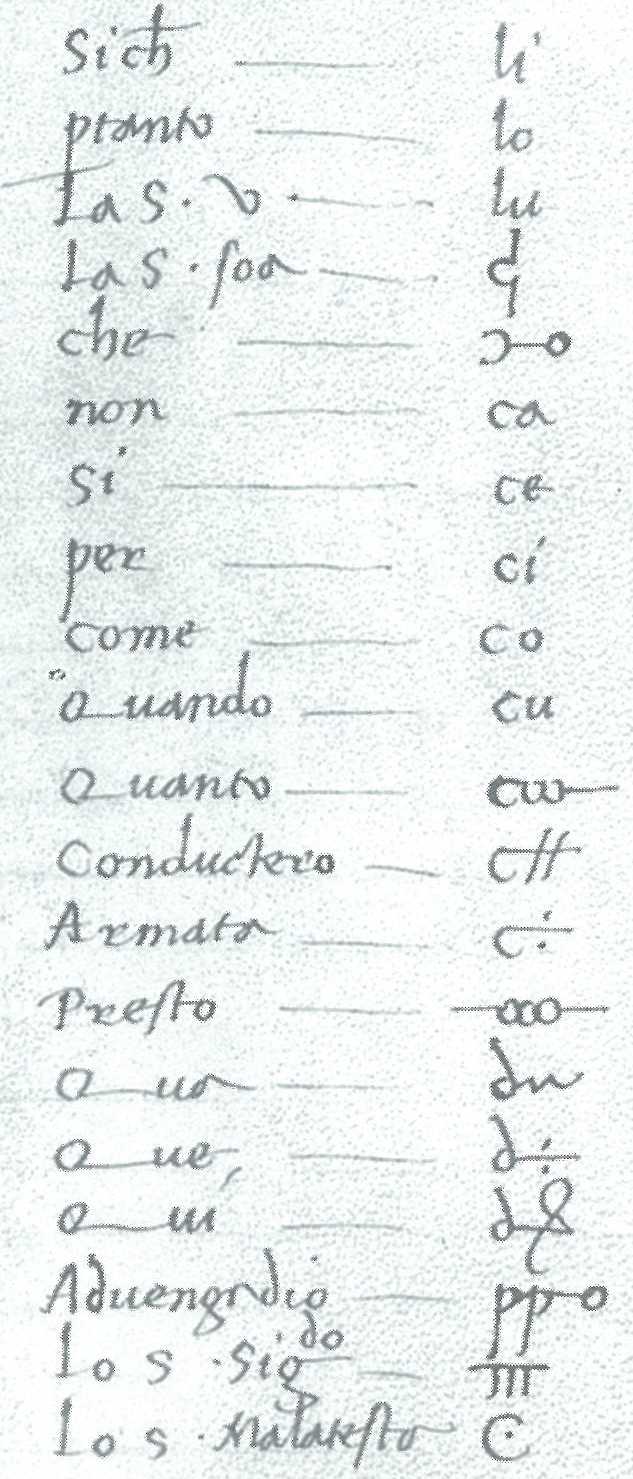 Sich li
ptanto lo
La S. v. lu
La S. soa
che
non ca
Si ce
per ci
come co
Quando cu
Quanto
Conductero
Armata
Presto
Qua
Que
Qui
Aduengadio
Lo S. Sig do
Lo S. Malatesto